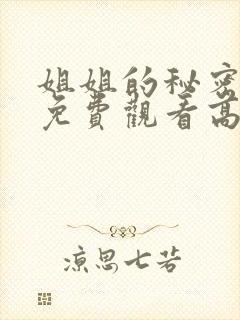 姐姐的秘密
免費觀看高
凉思七若